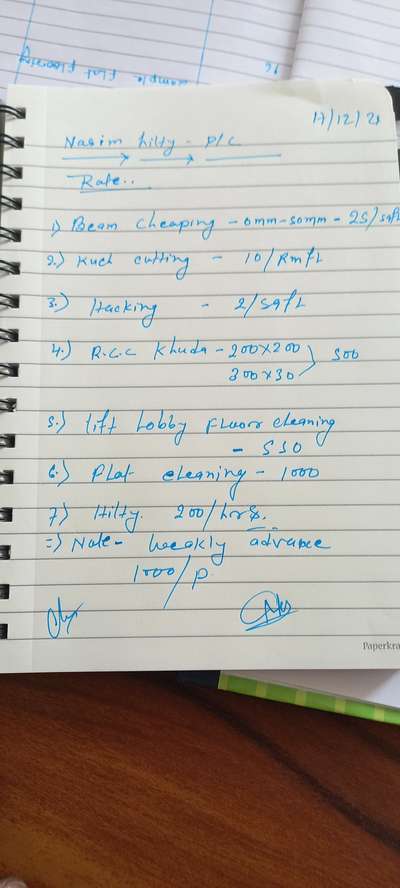 16
Sample flat flooring
17/12/21
Nasim hilty - P/C
Rate..
1) Beam cheaping - 0mm-50mm - 25/sqft
2.) Kuch cutting - 10/Rmft
3.) Hacking - 2/sqft
4.) R.C.C Khuda - 200x200 } 500
300x30
5.) lift Lobby Fluorr cleaning
- 550
6.) Plat cleaning - 1000
7) Hilty. 200/hrs.
=) Note - weekly advance
1000/P.
Paperkra